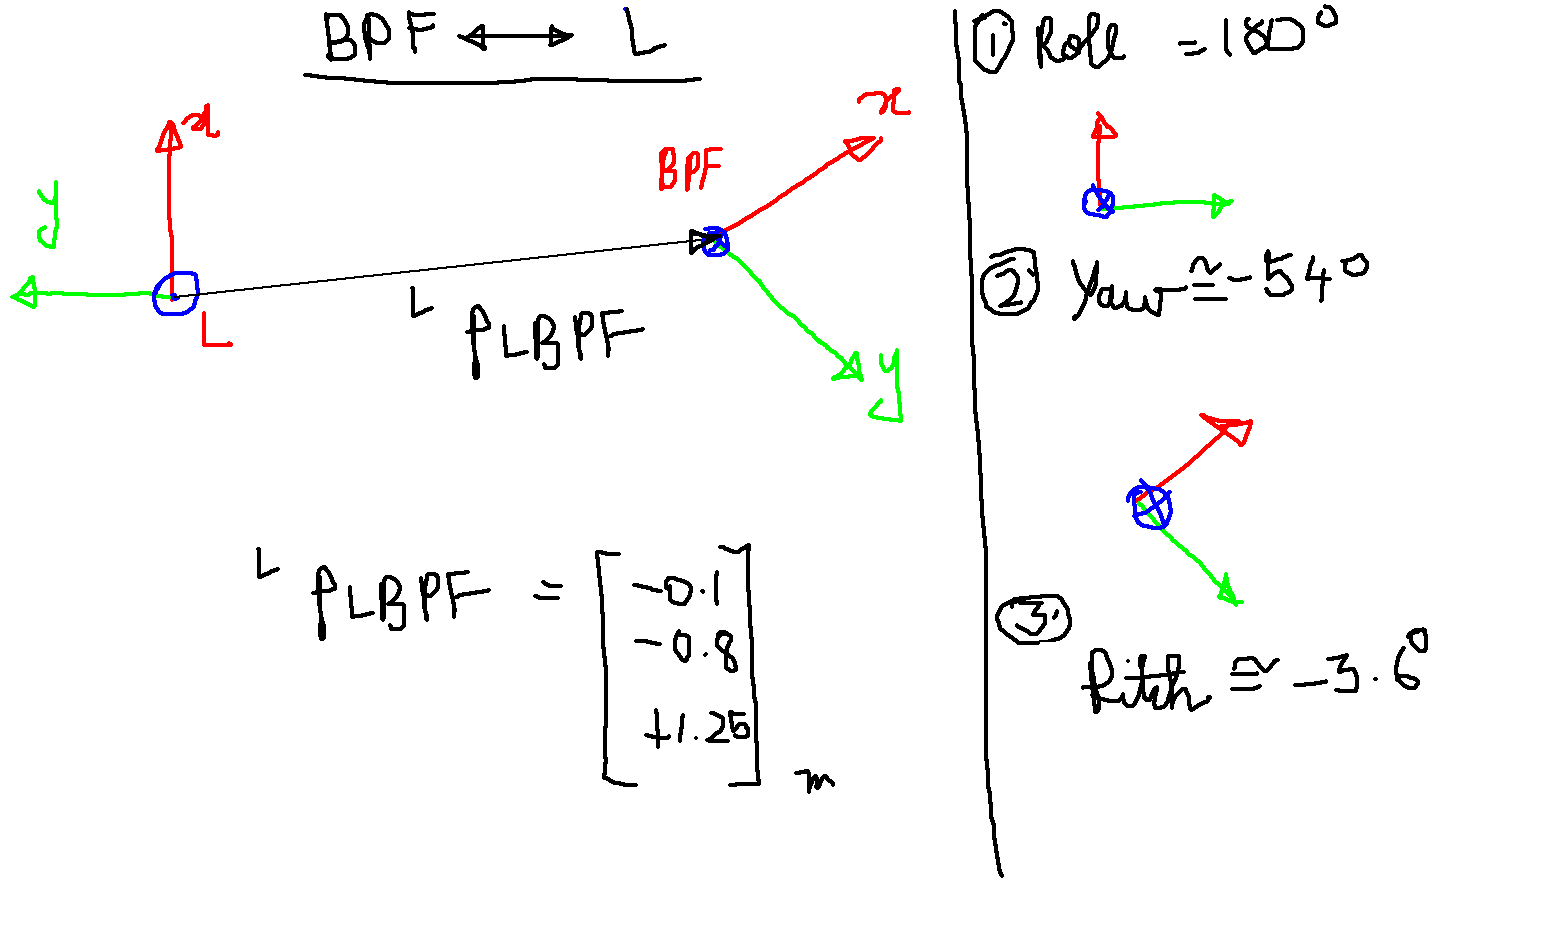 BPF ↔ L
x
y
L
BPF
x
y
L PLBPF
L PLBPF = [ -0.1
-0.8
+1.25 ] m
① Roll = 180°
② Yaw ≅ -54°
③
Pitch ≅ -3.6°